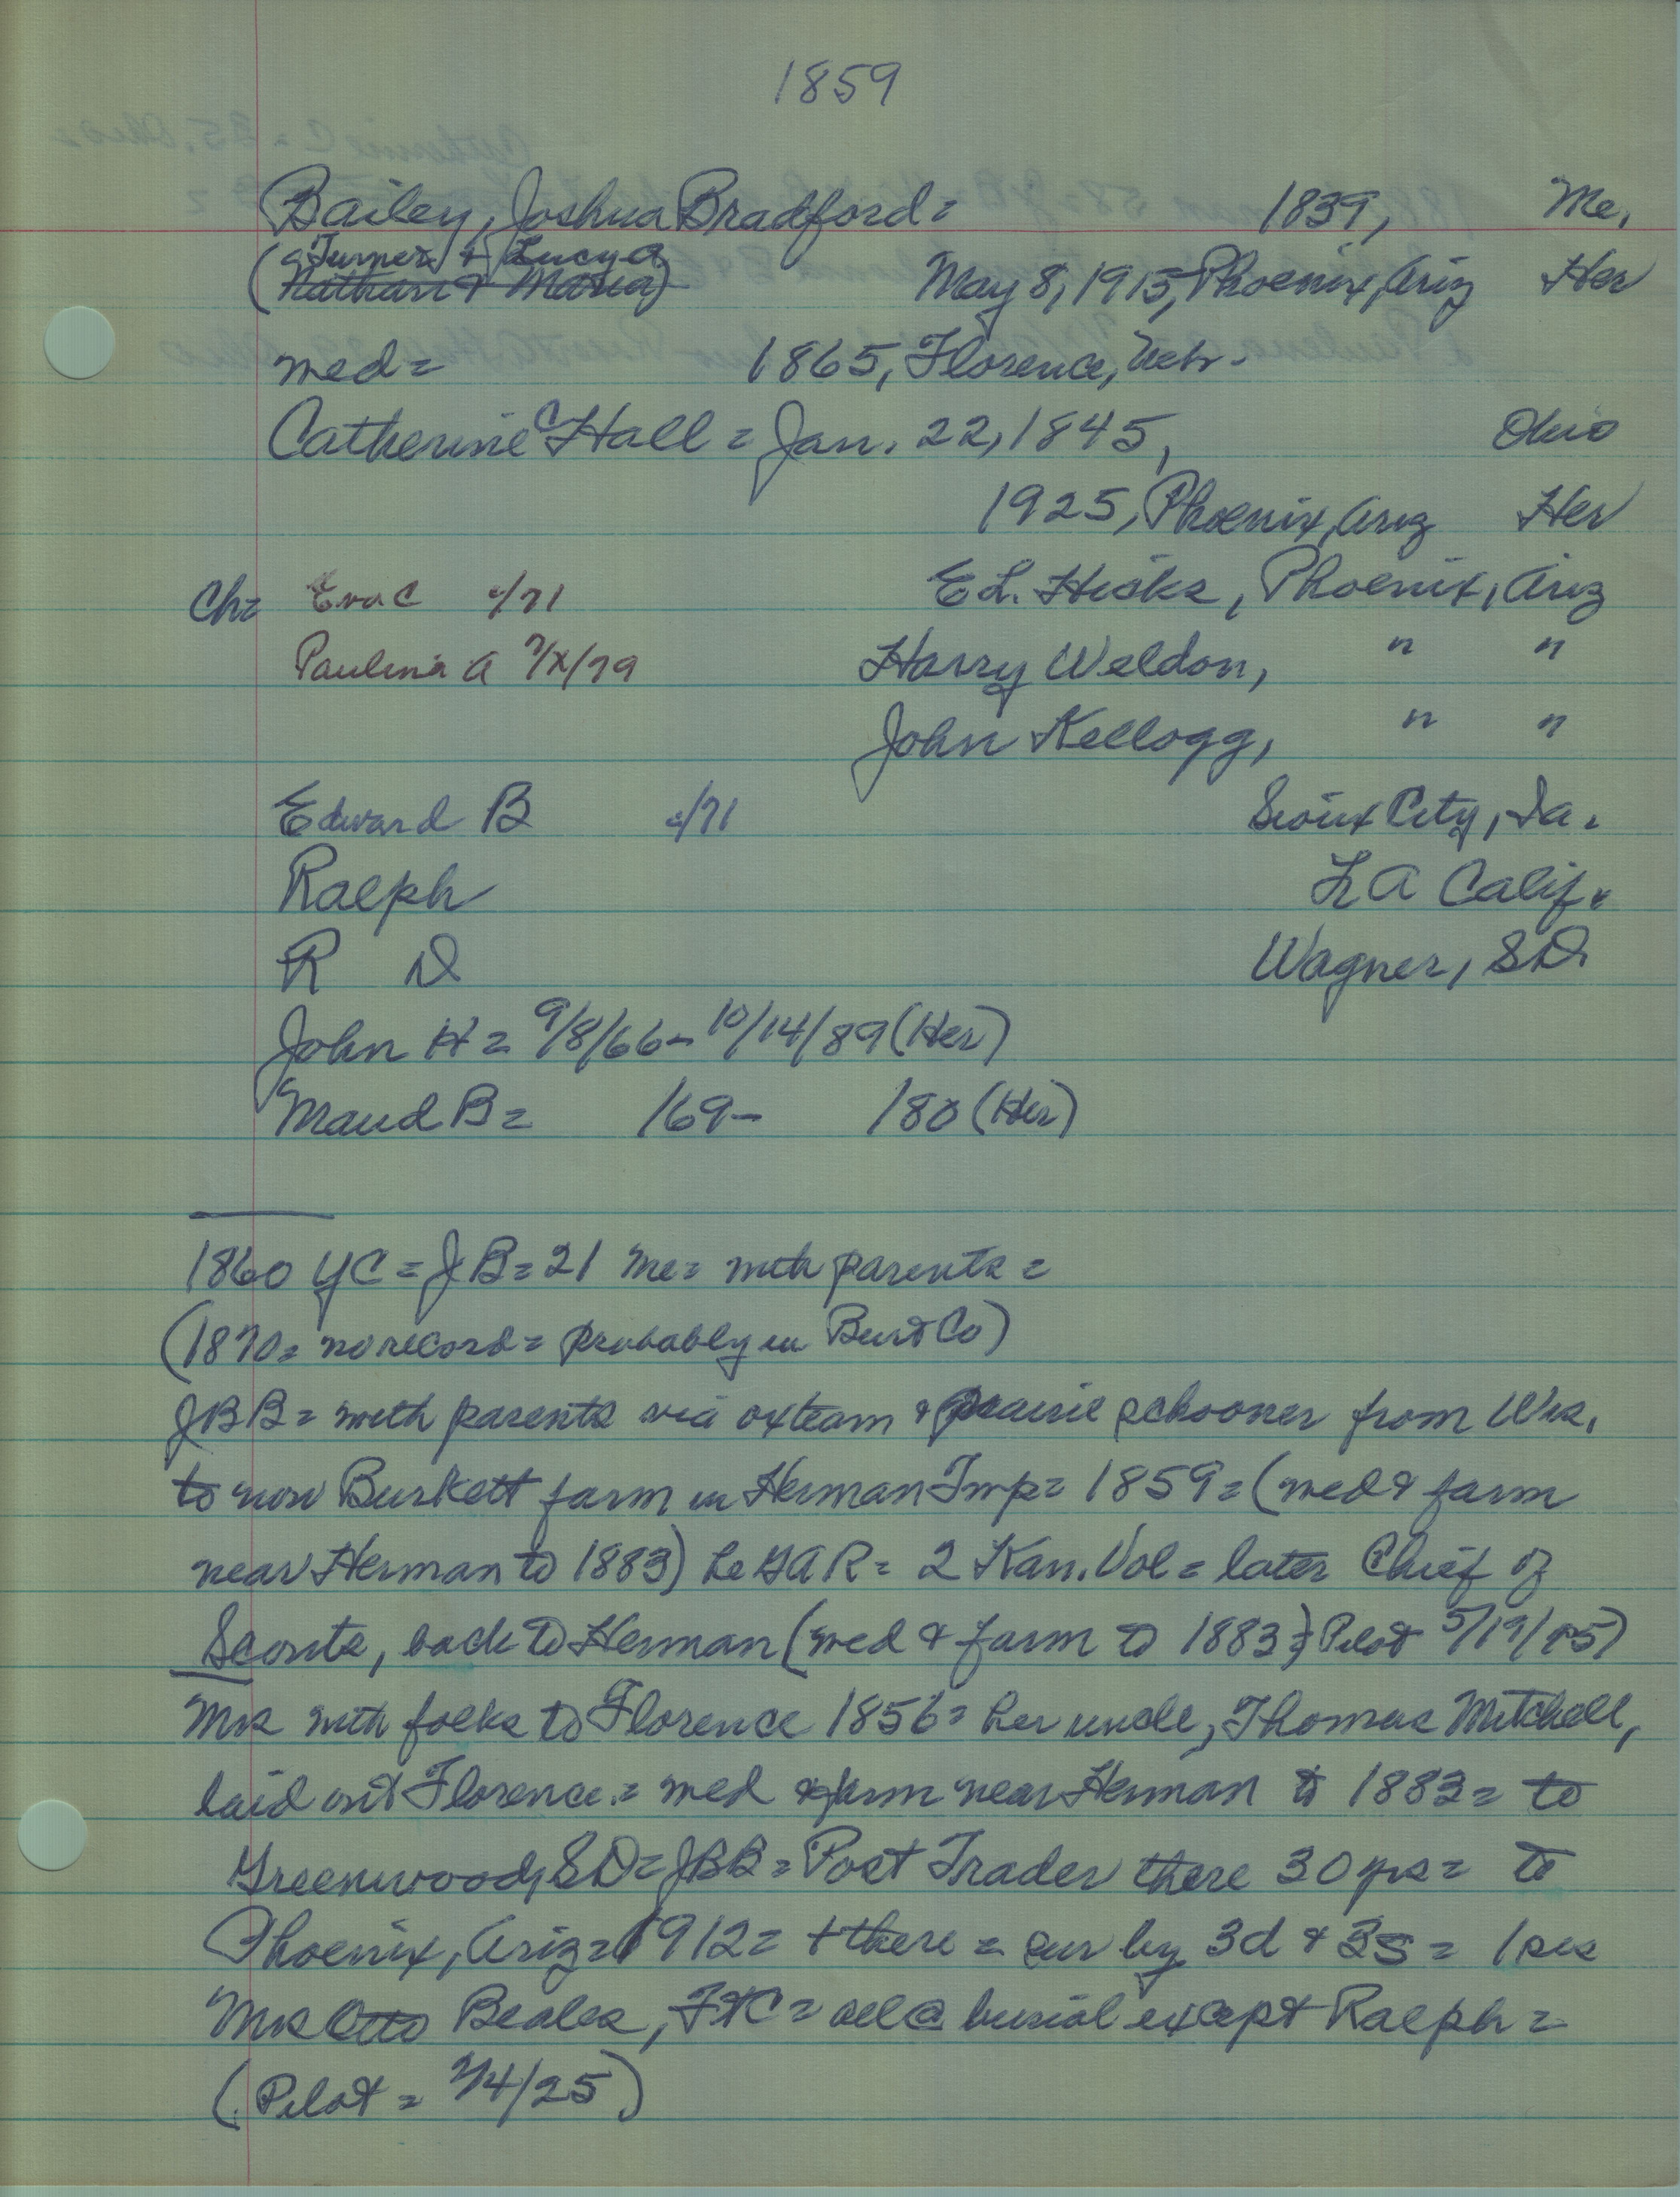 1859
Bailey, Joshua Bradford = 1839, Me.
(Turner & Lucy A
Nathan & Maria) May 8, 1915, Phoenix, Ariz Her
med = 1865, Florence, Nebr.
Catherine C Hall = Jan. 22, 1845, Ohio
1925, Phoenix, Ariz Her
Ch = Eva C c/71 E L. Hicks, Phoenix, Ariz
Paulina A 7/X/79 Harry Weldon, " "
John Kellogg, " "
Edward B c/71 Sioux City, Ia.
Ralph L A Calif.
R D Wagner, SD
John H = 9/8/66 - 10/14/89 (Her)
Maud B = /69 - /80 (Her)
1860 YC = JB = 21 Me = with parents =
(1870 = no record = probably in Burt Co)
JBB = with parents via oxteam & prairie schooner from Wis.
to now Burkett farm in Herman Tmp = 1859 = (med & farm
near Herman to 1883) he GAR = 2 Kan. Vol = later Chief of
Scouts, back to Herman (med & farm to 1883; Pilot 5/19/15)
Mrs with folks to Florence 1856 = her uncle, Thomas Mitchell,
laid out Florence. = med & farm near Herman to 1883 = to
Greenwood, SD = JBB = Post Trader there 30 yrs = to
Phoenix, Ariz = 1912 = + there = sur by 3d & 3s = 1 sis
Mrs Otto Beales, FtC = all @ burial except Ralph =
(Pilot = /4/25)